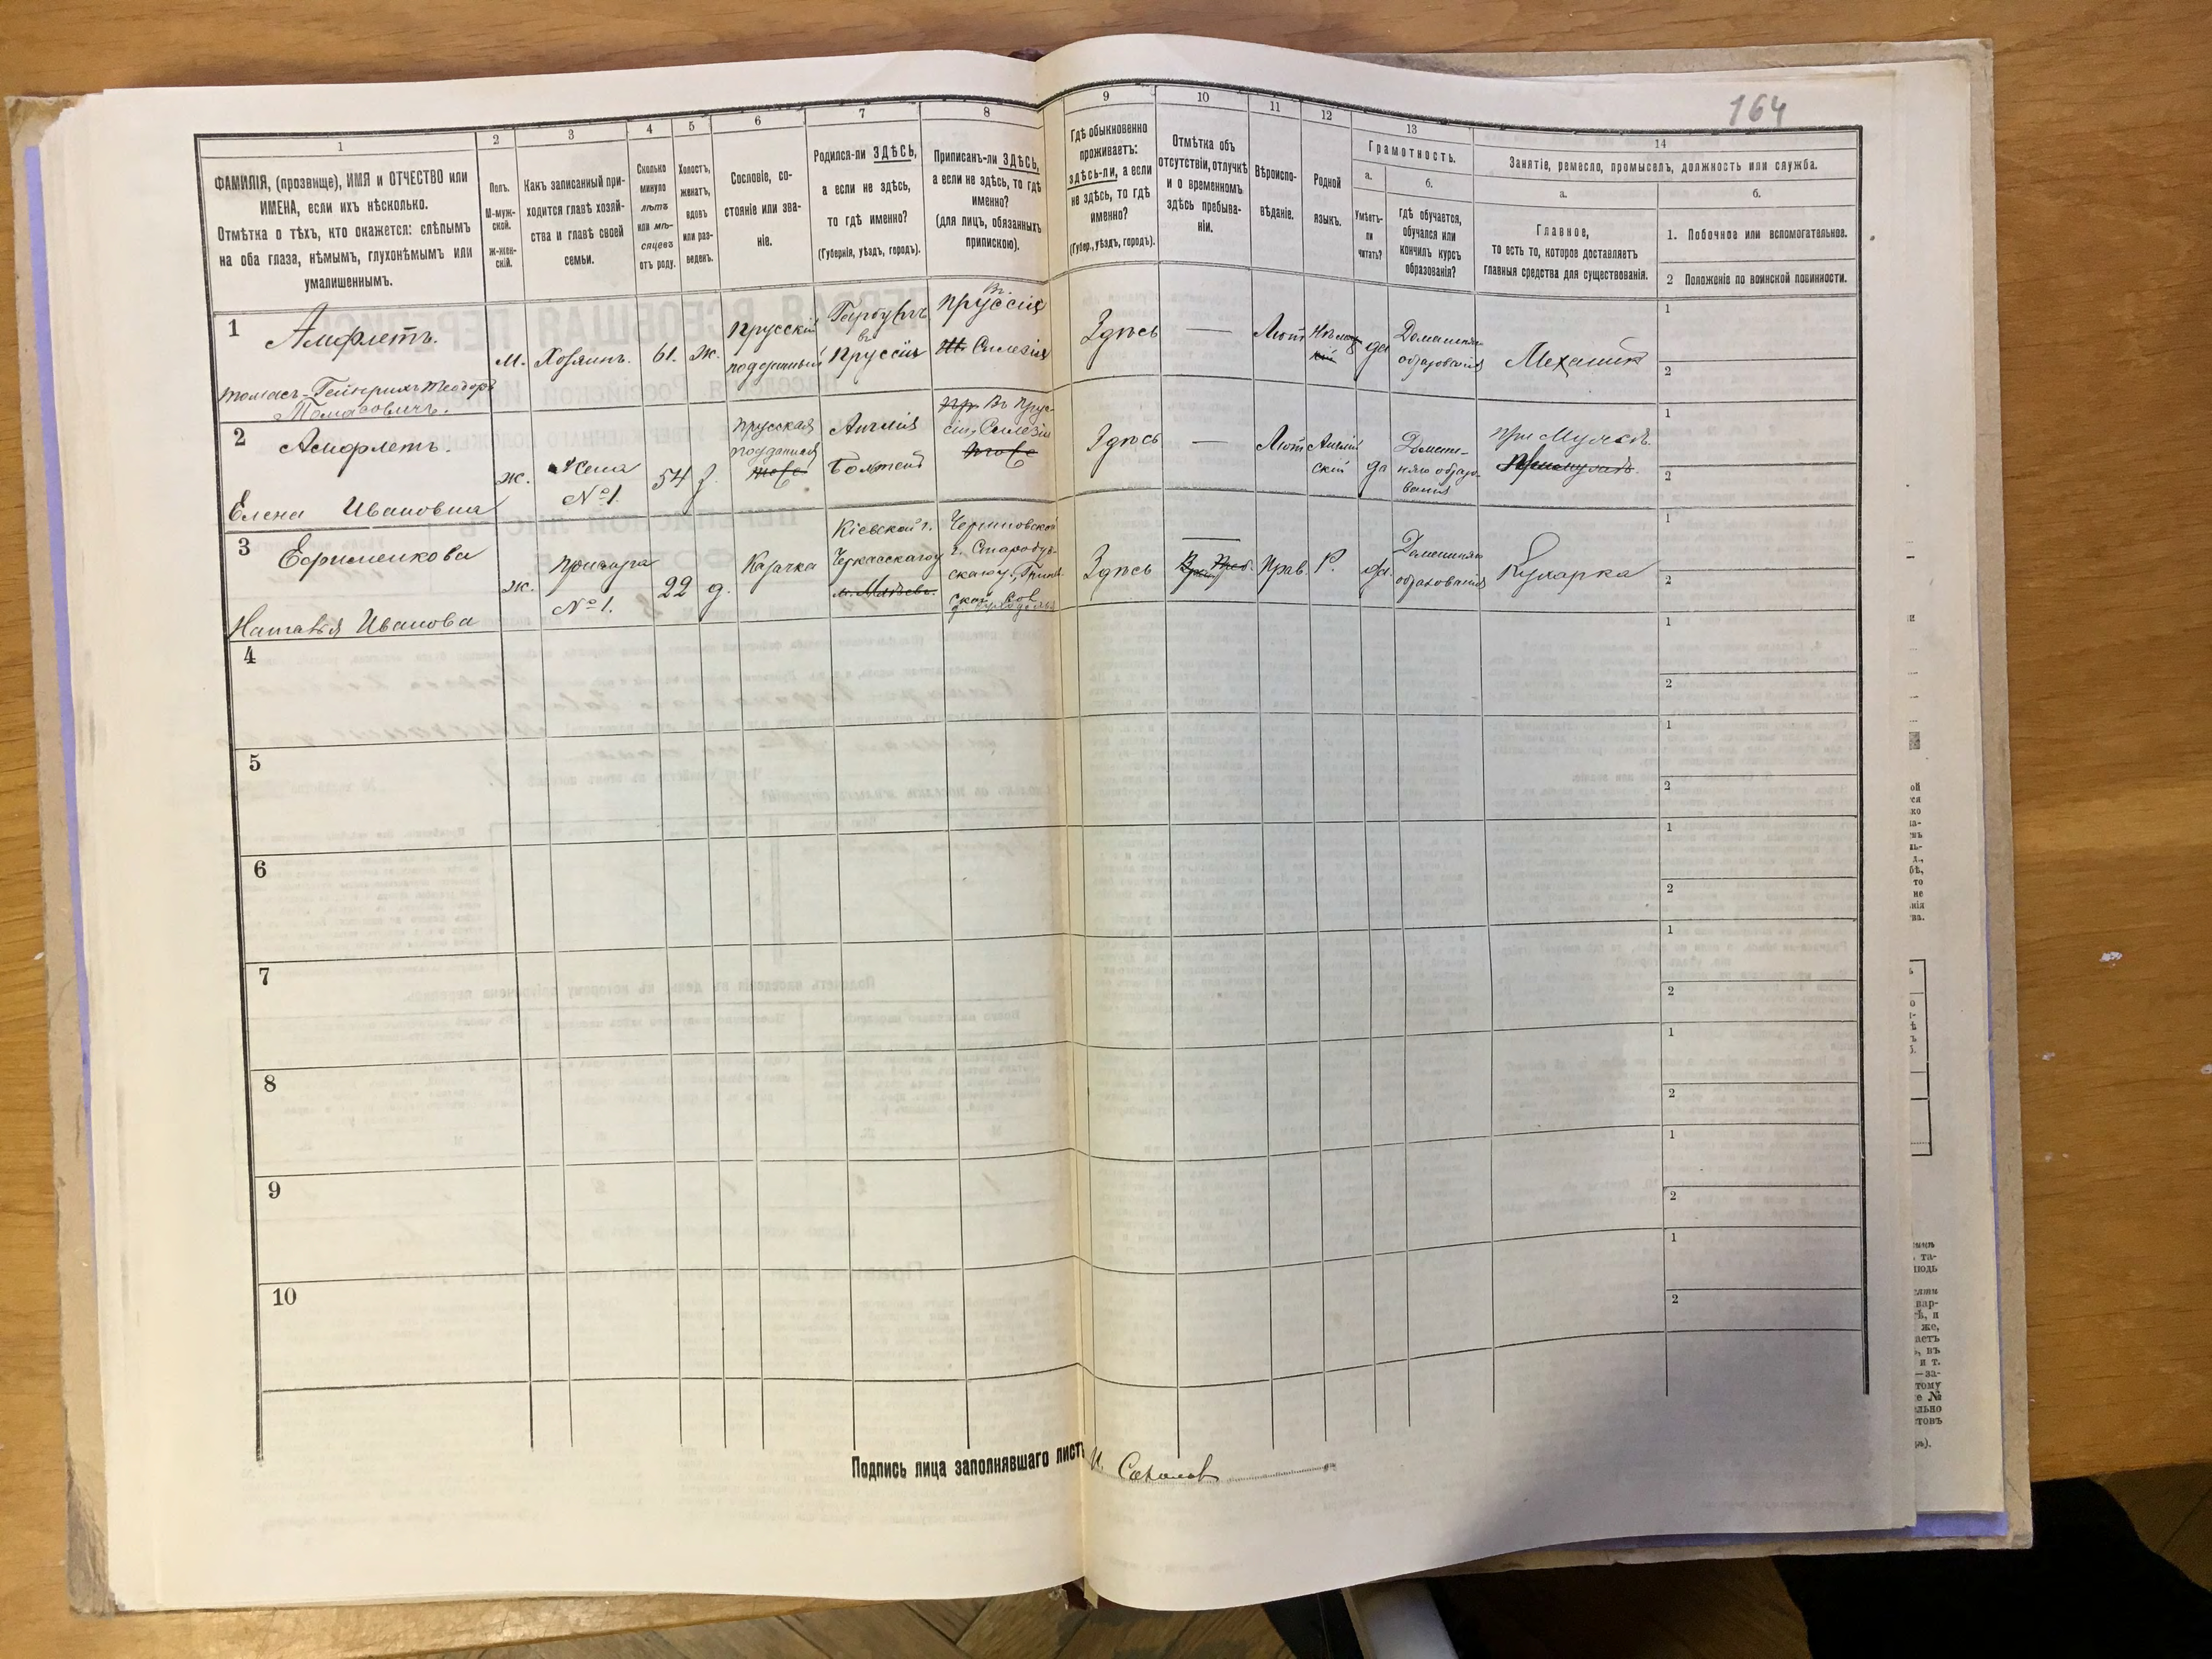 164
1
2
3
4
5
6
7
8
9
10
11
12
13
14
ФАМИЛІЯ, (прозвище), ИМЯ и ОТЧЕСТВО или
ИМЕНА, если ихъ нѣсколько.
Отмѣтка о тѣхъ, кто окажется: слѣпымъ
на оба глаза, нѣмымъ, глухонѣмымъ или
умалишеннымъ.
Полъ.
М-муж-
ской.
Ж-жен-
скій.
Какъ записанный при-
ходится главѣ хозяй-
ства и главѣ своей
семьи.
Сколько
минуло
лѣтъ
или мѣ-
сяцевъ
отъ роду.
Холостъ,
женатъ,
вдовъ
или раз-
веденъ.
Сословіе, со-
стояніе или зва-
ніе.
Родился-ли ЗДѢСЬ,
а если не здѣсь,
то гдѣ именно?
(Губернія, уѣздъ, городъ).
Приписанъ-ли ЗДѢСЬ,
а если не здѣсь, то гдѣ
именно?
(для лицъ, обязанныхъ
припискою).
Гдѣ обыкновенно
проживаетъ:
здѣсь-ли, а если
не здѣсь, то гдѣ
именно?
(Губер., уѣздъ, городъ).
Отмѣтка объ
отсутствіи, отлучкѣ
и о временномъ
здѣсь пребыва-
ніи.
Вѣроиспо-
вѣданіе.
Родной
языкъ.
Грамотность.
а.
Умѣетъ-
ли
читать?
б.
гдѣ обучается,
обучался или
кончилъ курсъ
образованія?
Занятіе, ремесло, промыселъ, должность или служба.
а.
Главное,
то есть то, которое доставляетъ
главныя средства для существованія.
б.
1. Побочное или вспомогательное.
2 Положеніе по воинской повинности.
1
Амфлетъ.
Томасъ-Гейнрихъ Теодоръ
Томасовичъ.
М.
Хозяинъ.
61.
ж.
Прусскій
подданный
въ
Пруссія
въ
Пруссія
Силезія
Здѣсь
—
Лют
да
Домашняго
образованія
Механикъ
1
2
2
Амфлетъ.
Елена Ивановна
ж.
Жена
№ 1.
54
з.
Прусская
подданная
Англія
Въ Прус-
сіи, Силезія
Здѣсь
—
Лют
Англій
скій
да
Домаш-
няго образо-
ванія
при Мужѣ.
1
2
3
Ефименкова
Наталья Иванова
ж.
Прислуга
№ 1.
22
д.
Козачка
Кіевской г.
Черкасскаго у
Черниговской
г. Стародуб-
скаго у.
Здѣсь
—
Прав.
Р.
да.
Домашняго
образованія
Кухарка
1
2
4
1
2
5
1
2
6
1
2
7
1
2
8
1
2
9
1
2
10
1
2
Подпись лица заполнявшаго листъ